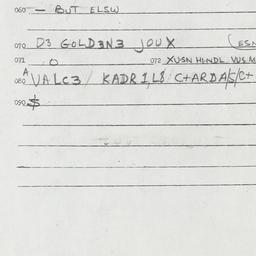 060 — BUT ELSW
070 D3 GOLD3N3 JOUX (ESN
071 O 072 XUSN HLNDL VUS M
A
080 VALC3/ KADR1,L8/ C+ARDA/S/C+
090 $